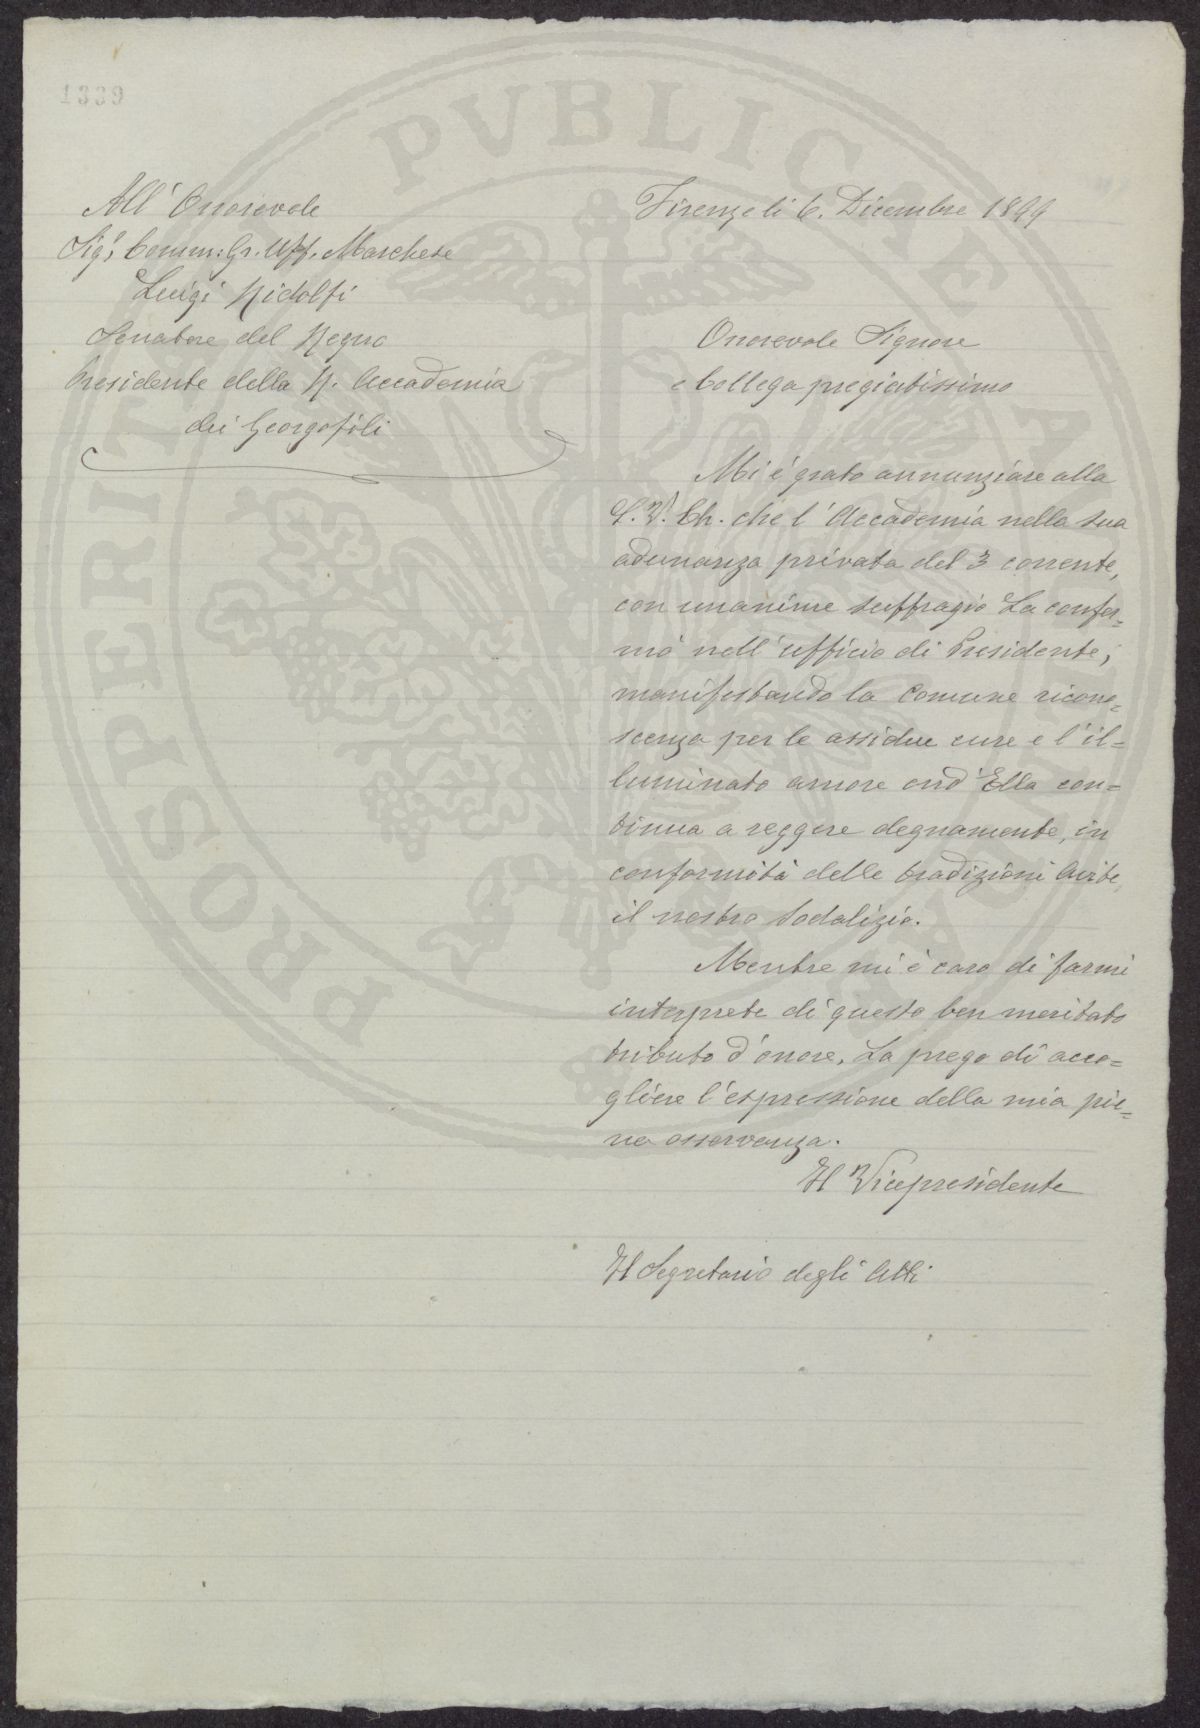 1339
All' Onorevole
Sig.r Comm: Gr. Uff. Marchese
Luigi Ridolfi
Senatore del Regno
Presidente della R. Accademia
dei Georgofili
Firenze li 6. Dicembre 1899
Onorevole Signore
e Collega pregiatissimo
Mi è grato annunziare alla
S. V. Ch. che l'Accademia nella sua
adunanza privata del 3 corrente,
con unanime suffragio La confer=
mò nell'ufficio di Presidente;
manifestando la comune ricono=
scenza per le assidue cure e l'il=
luminato amore ond'Ella con=
tinua a reggere degnamente, in
conformità delle tradizioni avite,
il nostro Sodalizio.
Mentre mi è caro di farmi
interprete di questo ben meritato
tributo d'onore, La prego di acco=
gliere l'espressione della mia pie=
na osservanza.
Il Vicepresidente
Il Segretario degli Atti
PROSPERITATI PVBLICAE AVGENDAE